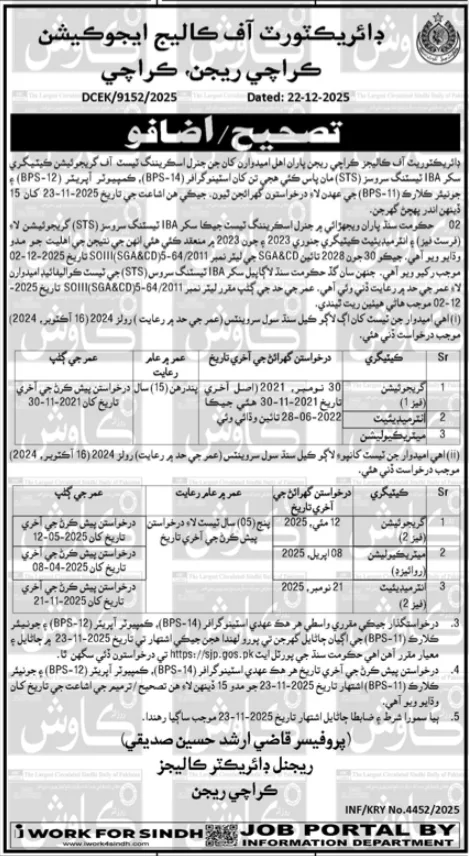 ڊائريڪٽوريٽ آف ڪاليج ايجوڪيشن
ڪراچي ريجن، ڪراچي
DCEK/9152/2025 Dated: 22-12-2025
تصحيح/اضافو
ڊائريڪٽوريٽ آف ڪاليجز ڪراچي ريجن پاران اهل اميدوارن کان جن جنرل اسڪريننگ ٽيسٽ آف گريجوئيشن ڪيٽيگري
IBA سکر ٽيسٽنگ سروسز (STS) مان پاس ڪئي هجي تن کان اسٽينوگرافر (BPS-14)، ڪمپيوٽر آپريٽر (BPS-12) ۽
جونيئر ڪلارڪ (BPS-11) جي عهدن لاءِ درخواستون گهرائجن ٿيون. جيڪي هن اشاعت جي تاريخ 23-11-2025 کان 15
ڏينهن اندر پهچڻ گهرجن.
02 حڪومت سنڌ پاران ويجهڙائي ۾ جنرل اسڪريننگ ٽيسٽ جيڪا سکر IBA ٽيسٽنگ سروسز (STS) گريجوئيشن لاءِ
(فرسٽ فيز) ۽ انٽرميڊيئيٽ ڪيٽيگري جنوري 2023 ۽ جون 2023 ۾ منعقد ڪئي هئي انهن جي نتيجن جي اهليت جو مدو
وڌايو ويو آهي. جيڪو 30 جون 2028 تائين SGA&CD جي ليٽر نمبر SOIII(SGA&CD)5-64/2011 تاريخ 02-12-2025
موجب رکيو ويو آهي. جنهن سان گڏ حڪومت سنڌ لاڳاپيل سکر IBA ٽيسٽنگ سروس (STS) جي ٽيسٽ ڪواليفائيڊ اميدوارن
لاءِ عمر جي حد ۾ رعايت ڏني وئي آهي. عمر جي حد جي ڳڻپ مقرر ليٽر نمبر SOIII(SGA&CD)5-64/2011 تاريخ 2025-
12-02 موجب هاڻي هيٺين ريت ٿيندي.
(i) اهي اميدوار جن ٽيسٽ کان اڳ لاڳو ڪيل سنڌ سول سروينٽس (عمر جي حد ۾ رعايت) رولز 2024 (16 آڪٽوبر، 2024)
موجب درخواست ڏني هئي.
Sr ڪيٽيگري درخواستن گهرائڻ جي آخري تاريخ عمر ۾ عام رعايت عمر جي ڳڻپ
1 گريجوئيشن (فيز 1) 30 نومبر، 2021 (اصل آخري تاريخ 30-11-2021 هئي جيڪا 28-06-2022 تائين وڌائي وئي) پندرهن (15) سال درخواستن پيش ڪرڻ جي آخري تاريخ کان 30-11-2021
2 انٽرميڊيئيٽ
3 ميٽريڪيوليشن
(ii) اهي اميدوار جن ٽيسٽ کانپوءِ لاڳو ڪيل سنڌ سول سروينٽس (عمر جي حد ۾ رعايت) رولز 2024 (16 آڪٽوبر، 2024)
موجب درخواست ڏني هئي.
Sr ڪيٽيگري درخواستن گهرائڻ جي آخري تاريخ عمر ۾ عام رعايت عمر جي ڳڻپ
1 گريجوئيشن (فيز 2) 12 مئي، 2025 پنج (05) سال ٽيسٽ لاءِ درخواستن پيش ڪرڻ جي آخري تاريخ درخواستن پيش ڪرڻ جي آخري تاريخ کان 12-05-2025
2 ميٽريڪيوليشن (روائيزڊ) 08 اپريل، 2025 درخواستن پيش ڪرڻ جي آخري تاريخ کان 08-04-2025
3 انٽرميڊيئيٽ (فيز 2) 21 نومبر، 2025 درخواستن پيش ڪرڻ جي آخري تاريخ کان 21-11-2025
3. درخواستگذار جيڪي مقرري واسطي هر هڪ عهدي اسٽينوگرافر (BPS-14)، ڪمپيوٽر آپريٽر (BPS-12) ۽ جونيئر
ڪلارڪ (BPS-11) جي اڳيان ڄاڻايل گهرجن تي پورو لهندا هجن جيڪي اشتهار تي تاريخ 23-11-2025 ۾ ڄاڻايل ۽
معيار مقرر آهن اهي حڪومت سنڌ جي پورٽل ايٽ https://sjp.gos.pk تي درخواستون ڏئي سگهن ٿا.
4. درخواستن پيش ڪرڻ جي آخري تاريخ هر هڪ عهدي اسٽينوگرافر (BPS-14)، ڪمپيوٽر آپريٽر (BPS-12) ۽ جونيئر
ڪلارڪ (BPS-11) اشتهار تاريخ 23-11-2025 جو مدو 15 ڏينهن لاءِ هن تصحيح/ترميم جي اشاعت جي تاريخ کان
وڌايو ويو آهي.
5. ٻيا سمورا شرط ۽ ضابطا ڄاڻايل اشتهار تاريخ 23-11-2025 موجب ساڳيا رهندا.
(پروفيسر قاضي ارشد حسين صديقي)
ريجنل ڊائريڪٽر ڪاليجز
ڪراچي ريجن
INF/KRY No.4452/2025
I WORK FOR SINDH
www.iwork4sindh.com
JOB PORTAL BY
INFORMATION DEPARTMENT